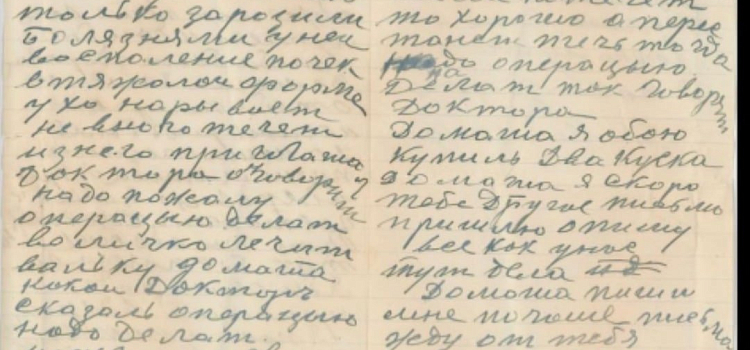 только зарозили
болязнями у ней
восполение почек
втяжолой форме
ухо нарывает
не много течет
из него приглаша
доктора оч говорит
надо пожалу
операцыю делат
воличко лечит
ваньку домаша
какой доктор
сказаль операцыю
надо делат.
то хорошо а пере
танет течь тогда
надо операцыю
делат так говорят
доктора
Домаша я обою
купиль два куска
домаша я скоро
тебе другое письмо
пришлю опишу
все как унас
тут дела
Домаша пиши
мне почаще письма
жду от тебя